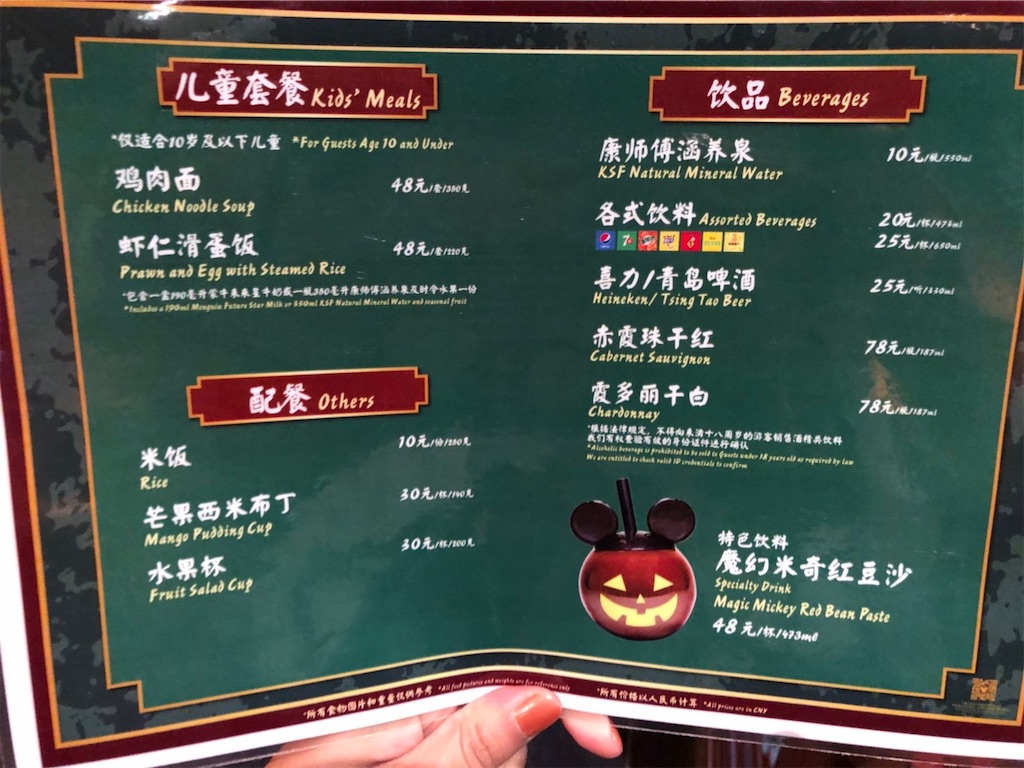 儿童套餐 Kids' Meals
*仅适合10岁及以下儿童 *For Guests Age 10 and Under
鸡肉面 48元/套/380克
Chicken Noodle Soup
虾仁滑蛋饭 48元/套/220克
Prawn and Egg with Steamed Rice
*包含一盒190毫升蒙牛未来星牛奶或一瓶350毫升康师傅涵养泉及时令水果一份
*Includes a 190ml Mengniu Future Star Milk or 350ml KSF Natural Mineral Water and seasonal fruit
配餐 Others
米饭 10元/份/250克
Rice
芒果西米布丁 30元/杯/140克
Mango Pudding Cup
水果杯 30元/杯/200克
Fruit Salad Cup
饮品 Beverages
康师傅涵养泉 10元/瓶/550ml
KSF Natural Mineral Water
各式饮料 Assorted Beverages 20元/杯/473ml
25元/杯/650ml
喜力/青岛啤酒 25元/听/330ml
Heineken/ Tsing Tao Beer
赤霞珠干红 78元/瓶/187ml
Cabernet Sauvignon
霞多丽干白 78元/瓶/187ml
Chardonnay
*根据法律规定，不得向未满十八周岁的游客销售酒精类饮料
我们有权查验有效的身份证件进行确认
*Alcoholic beverage is prohibited to be sold to Guests under 18 years old as required by law
We are entitled to check valid ID credentials to confirm
特色饮料
魔幻米奇红豆沙
Specialty Drink
Magic Mickey Red Bean Paste
48元/杯/473ml
*所有食物图片和重量仅供参考 *All food pictures and weights are for reference only
*所有价格以人民币计算 *All prices are in CNY